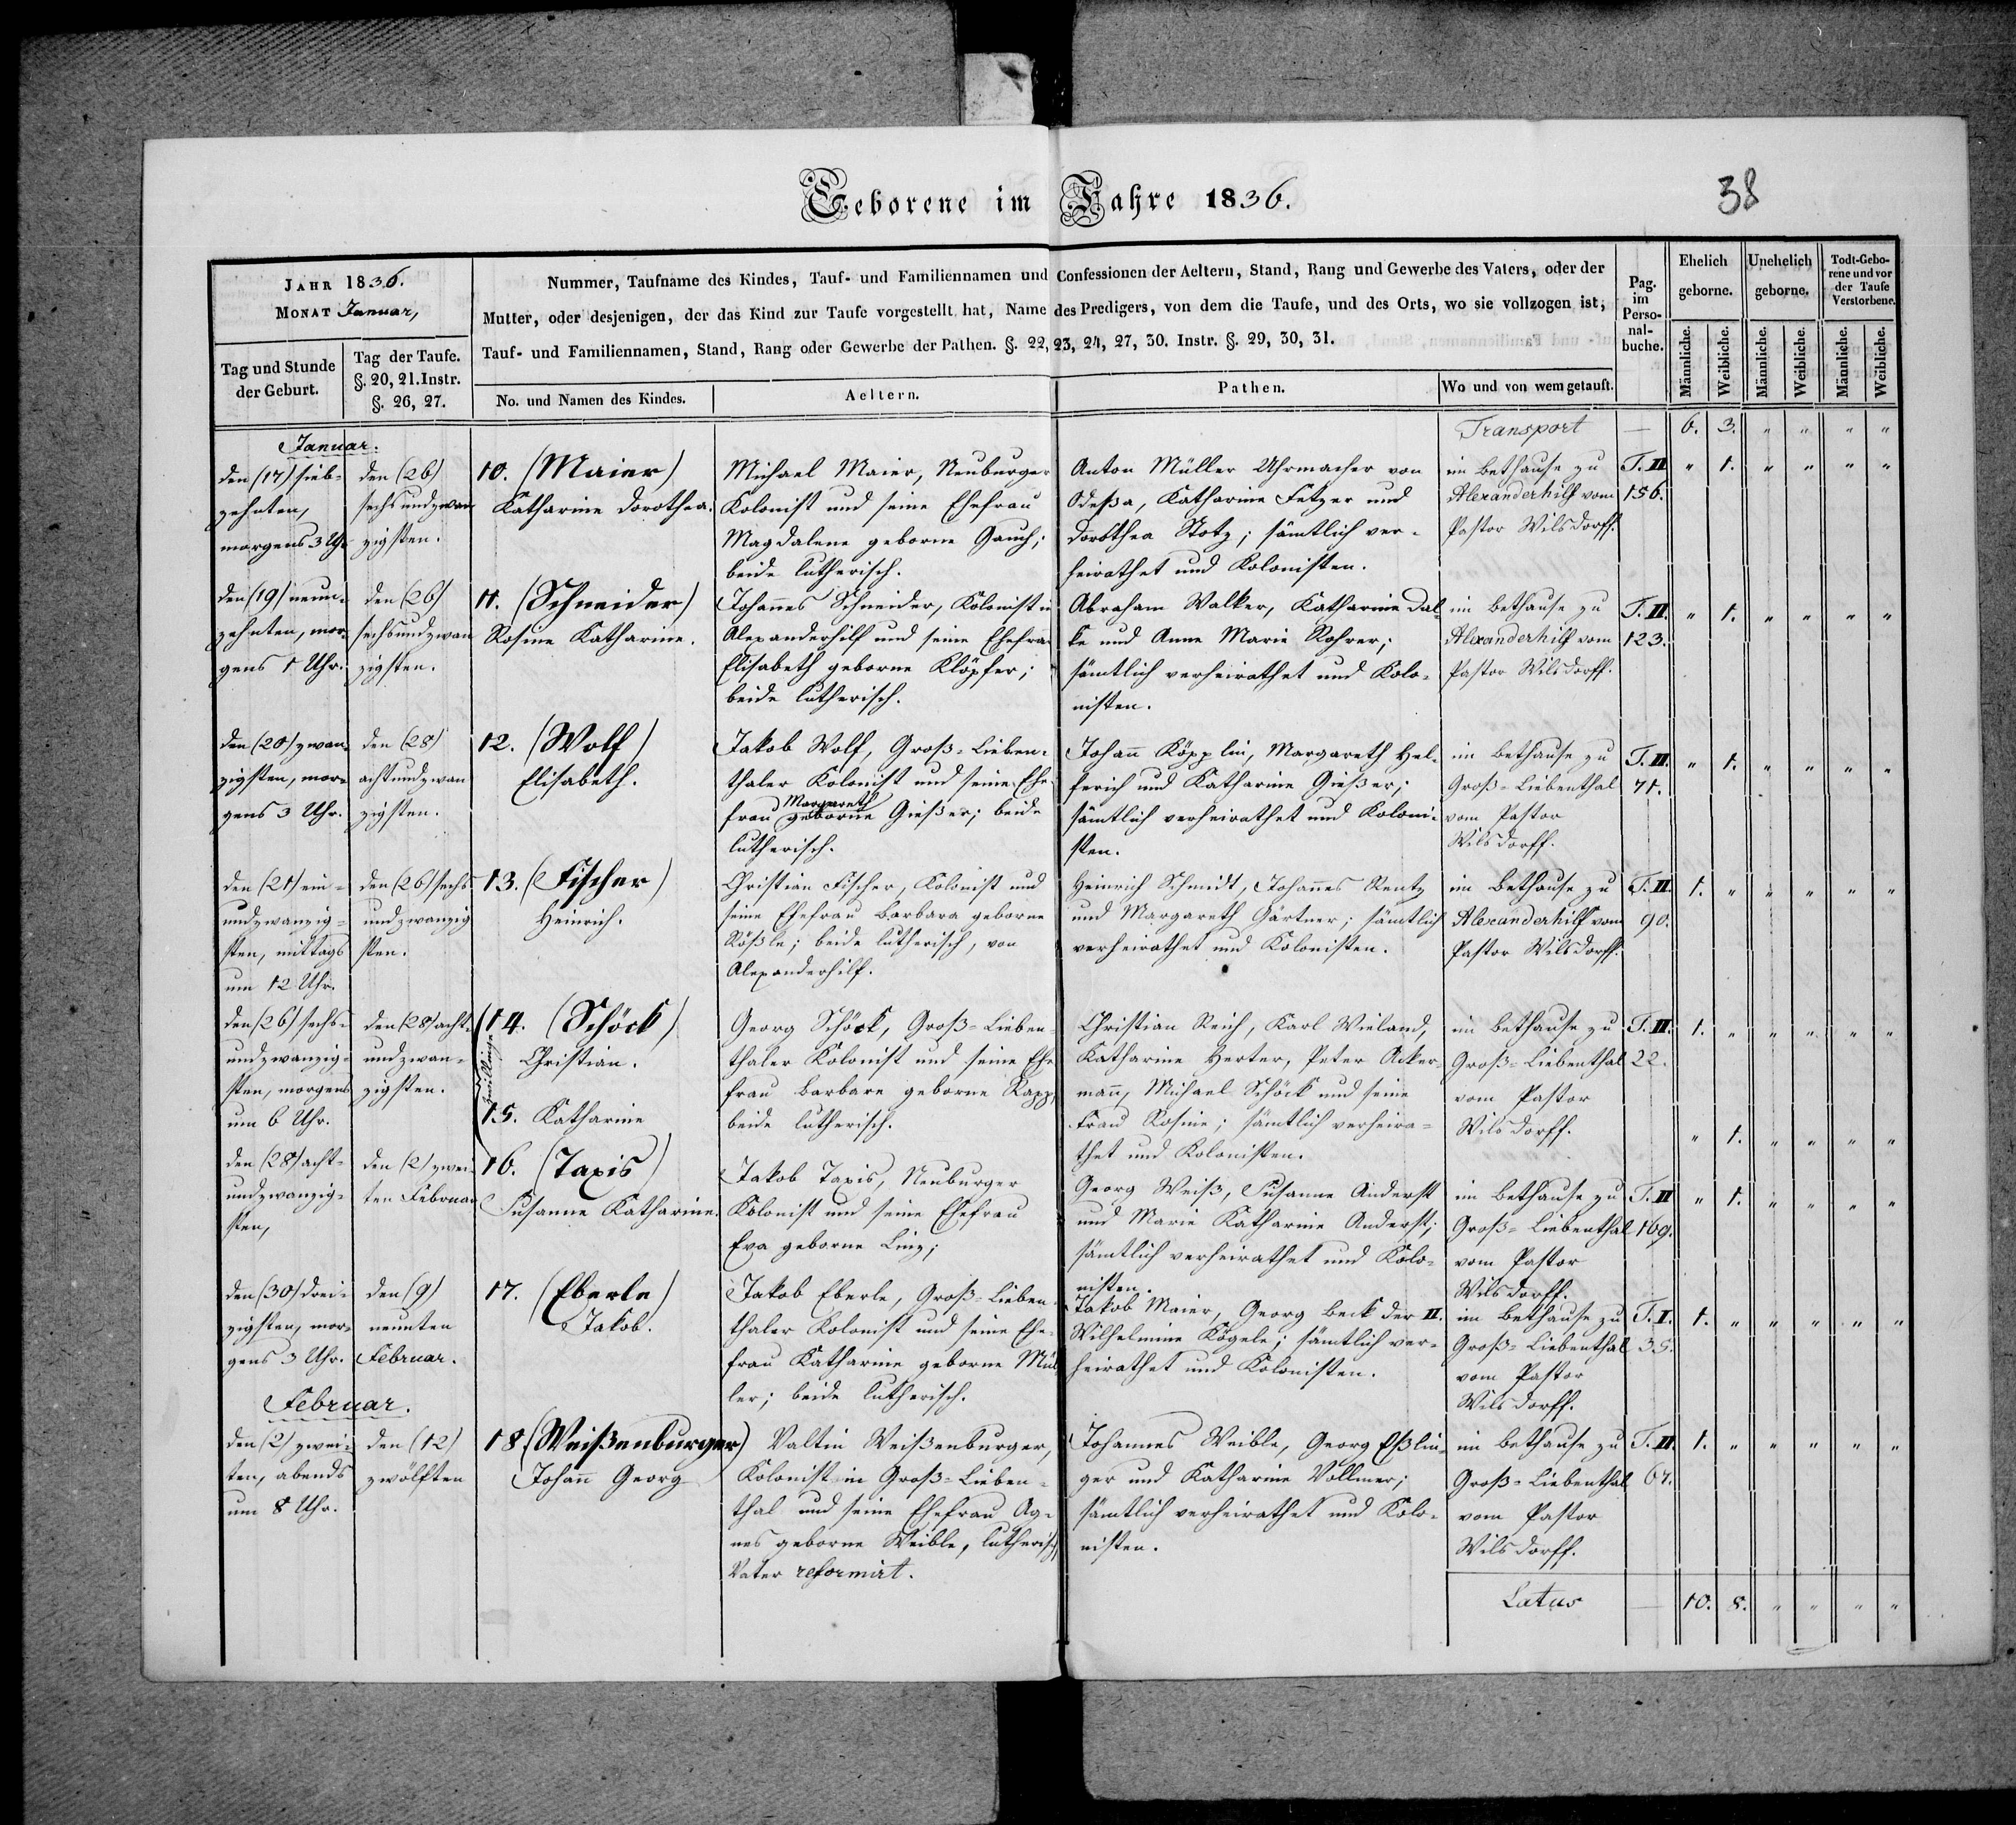 Geborene im Jahre 1836.
38
JAHR 1836.
MONAT Januar,
Tag und Stunde
der Geburt.
Tag der Taufe.
§. 20, 21. Instr.
§. 26, 27.
Nummer, Taufname des Kindes, Tauf- und Familiennamen und Confessionen der Aeltern, Stand, Rang und Gewerbe des Vaters, oder der
Mutter, oder desjenigen, der das Kind zur Taufe vorgestellt hat, Name des Predigers, von dem die Taufe, und des Orts, wo sie vollzogen ist,
Tauf- und Familiennamen, Stand, Rang oder Gewerbe der Pathen. §. 22, 23, 24, 27, 30. Instr. §. 29, 30, 31.
No. und Namen des Kindes.
Aeltern.
Pathen.
Wo und von wem getauft.
Pag.
im
Perso-
nal-
buche.
Ehelich
geborne.
Unehelich
geborne.
Todt-Gebo-
rene und vor
der Taufe
Verstorbene.
Männliche.
Weibliche.
Männliche.
Weibliche.
Männliche.
Weibliche.
Transport — 6. 3. " " " "
Januar.
den (17) sieb-
zehnten,
morgens 3 Uhr
den (26)
sechsundzwan
zigsten.
10. (Maier)
Katharine Dorothea.
Michael Maier, Neuburger
Kolonist und seine Ehefrau
Magdalene geborne Gauch;
beide lutherisch.
Anton Müller Uhrmacher von
Odeßa, Katharine Fetzer und
Dorothea Stotz; sämtlich ver-
heirathet und Kolonisten.
im Bethause zu
Alexanderhilf vom
Pastor Wilsdorff.
T. II
156.
" 1. " " " "
den (19) neun-
zehnten, mor-
gens 1 Uhr.
den (26)
sechsundzwan
zigsten.
11. (Schneider)
Rosine Katharine.
Johannes Schneider, Kolonist in
Alexanderhilf und seine Ehefrau
Elisabeth geborne Klöpfer;
beide lutherisch.
Abraham Walker, Katharine Dal-
ke und Anna Marie Rohrer;
sämtlich verheirathet und Kolo-
nisten.
im Bethause zu
Alexanderhilf vom
Pastor Wilsdorff.
T. II.
123.
" 1. " " " "
den (20) zwan
zigsten, mor-
gens 3 Uhr.
den (28)
achtundzwan
zigsten.
12. (Wolf)
Elisabeth.
Jakob Wolf, Groß-Lieben-
thaler Kolonist und seine Ehe-
Margareth
frau geborne Gießer; beide
lutherisch.
Johann Köpplin, Margareth Hel-
ferich und Katharine Gießer;
sämtlich verheirathet und Koloni-
sten.
im Bethause zu
Groß-Liebenthal
vom Pastor
Wilsdorff.
T. II.
71.
" 1. " " " "
den (21) ein-
undzwanzig-
sten, mittags
um 12 Uhr.
den (26) sechs
undzwanzig
sten.
13. (Fischer)
Heinrich.
Christian Fischer, Kolonist und
seine Ehefrau Barbara geborne
Rößle; beide lutherisch, von
Alexanderhilf.
Heinrich Schmidt, Johannes Rentz
und Margareth Gärtner; sämtlich
verheirathet und Kolonisten.
im Bethause zu
Alexanderhilf vom
Pastor Wilsdorff.
T. II.
90.
1. " " " " "
den (26) sechs-
undzwanzig-
sten, morgens
um 6 Uhr.
den (28) acht-
undzwan-
zigsten.
Zwillinge
14. (Schöck)
Christian.
15. Katharine
Georg Schöck, Groß-Lieben-
thaler Kolonist und seine Ehe
frau Barbara geborne Rapp,
beide lutherisch.
Christian Reich, Karl Wieland,
Katharine Herter, Peter Acker-
mann, Michael Schöck und seine
Frau Rosine; sämtlich verheira-
thet und Kolonisten.
im Bethause zu
Groß-Liebenthal
vom Pastor
Wilsdorff.
T. II.
22.
1. " " " " "
" 1. " " " "
den (28) acht-
undzwanzig-
sten,
den (2) zwei-
ten Februar
16. (Taxis)
Susanne Katharine.
Jakob Taxis, Neuburger
Kolonist und seine Ehefrau
Eva geborne Linz;
Georg Weiß, Susanne Anderst
und Marie Katharine Anderst;
sämtlich verheirathet und Kolo-
nisten.
im Bethause zu
Groß-Liebenthal
vom Pastor
Wilsdorff.
T. II
169.
" 1. " " " "
den (30) drei-
zigsten, mor-
gens 3 Uhr.
den (9)
neunten
Februar.
17. (Eberle)
Jakob.
Jakob Eberle, Groß-Lieben-
thaler Kolonist und seine Ehe-
frau Katharine geborne Mül
ler; beide lutherisch.
Jakob Maier, Georg Beck der II.
Wilhelmine Kögele; sämtlich ver-
heirathet und Kolonisten.
im Bethause zu
Groß-Liebenthal
vom Pastor
Wilsdorff.
T. I.
35.
1. " " " " "
Februar.
den (2) zwei-
ten, abends
um 8 Uhr.
den (12)
zwölften
18. (Weißenburger)
Johann Georg
Valtin Weißenburger,
Kolonist in Groß-Lieben-
thal und seine Ehefrau Ag-
nes geborne Weible, lutherisch
Vater reformirt.
Johannes Weible, Georg Eßlin-
ger und Katharine Vollmer;
sämtlich verheirathet und Kolo-
nisten.
im Bethause zu
Groß-Liebenthal
vom Pastor
Wilsdorff.
T. II.
67.
1. " " " " "
Latus — 10. 8. " " " "